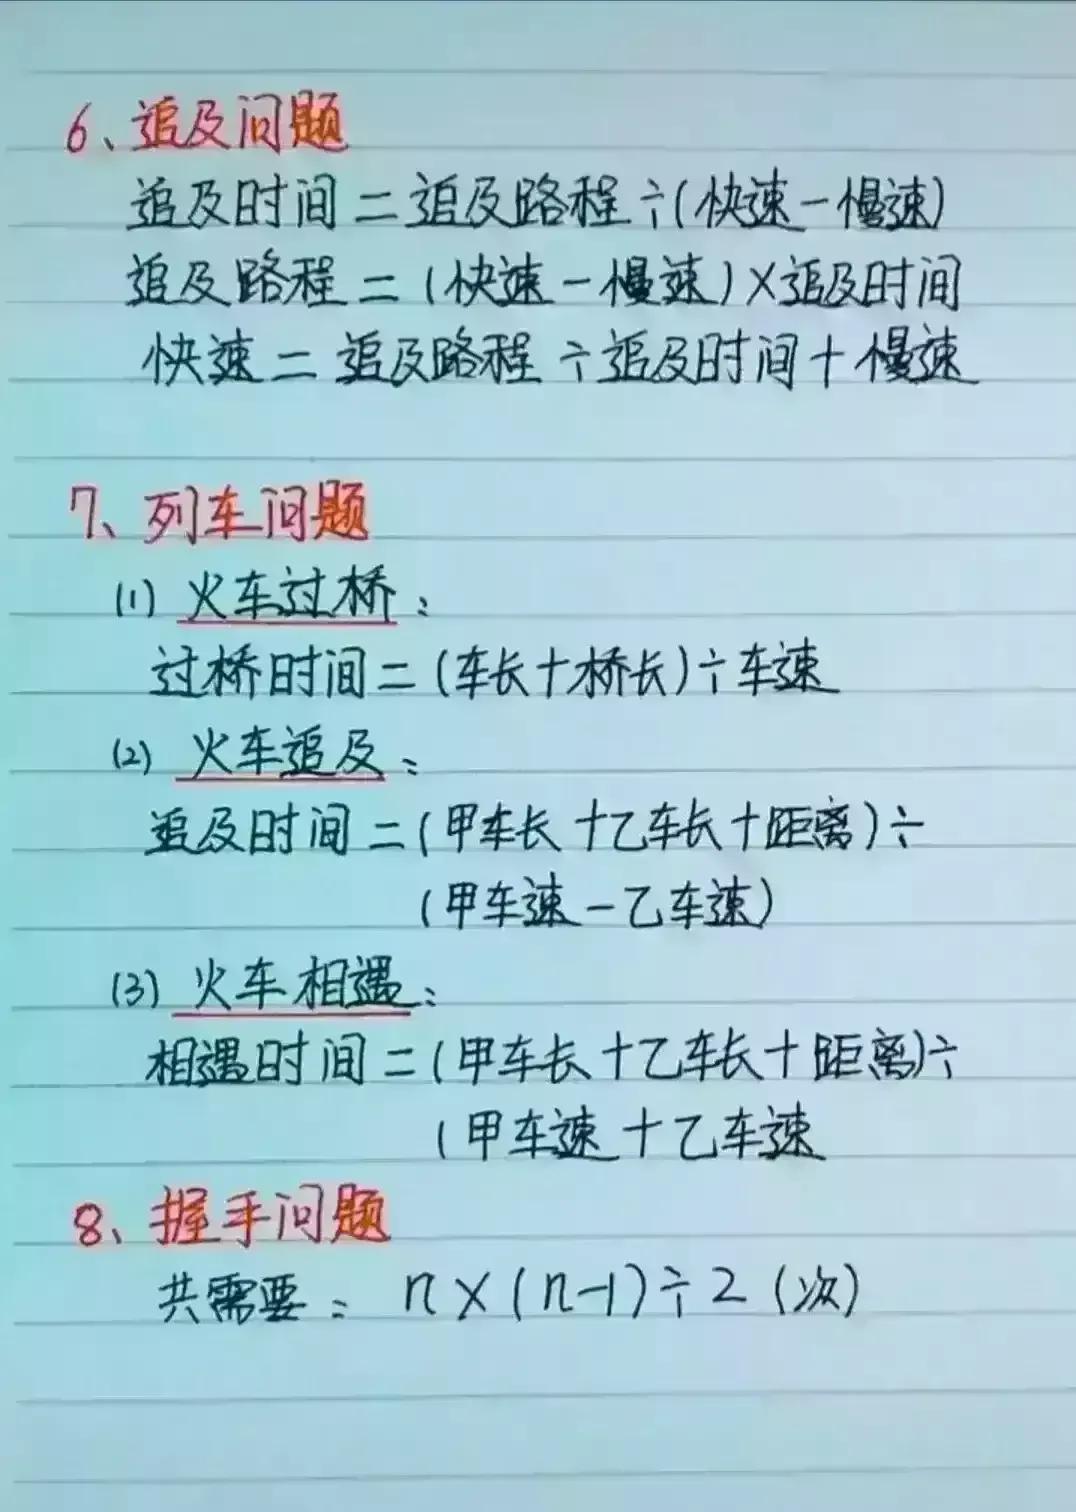 6、追及问题
追及时间=追及路程÷(快速-慢速)
追及路程=(快速-慢速)×追及时间
快速=追及路程÷追及时间+慢速
7、列车问题
(1) 火车过桥:
过桥时间=(车长+桥长)÷车速
(2) 火车追及:
追及时间=(甲车长+乙车长+距离)÷
(甲车速-乙车速)
(3) 火车相遇:
相遇时间=(甲车长+乙车长+距离)÷
(甲车速+乙车速
8、握手问题
共需要: n×(n-1)÷2(次)